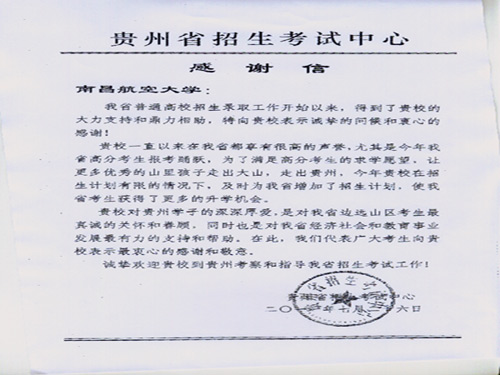 贵州省招生考试中心
感谢信
南昌航空大学：
我省普通高校招生录取工作开始以来，得到了贵校的
大力支持和鼎力相助，特向贵校表示诚挚的问候和衷心的
感谢！
贵校一直以来在我省都享有很高的声誉，尤其是今年我
省高分考生报考踊跃，为了满足高分考生的求学愿望，让
更多优秀的山里孩子走出大山，走出贵州，今年贵校在招
生计划有限的情况下，及时为我省增加了招生计划，使我
省考生获得了更多的升学机会。
贵校对贵州学子的深深厚爱，是对我省边远山区考生最
真诚的关怀和眷顾，同时也是对我省经济社会和教育事业
发展最有力的支持和帮助。在此，我们代表广大考生向贵
校表示最衷心的感谢和敬意。
诚挚欢迎贵校到贵州考察和指导我省招生考试工作！
贵州省招生考试中心
二〇年七月六日